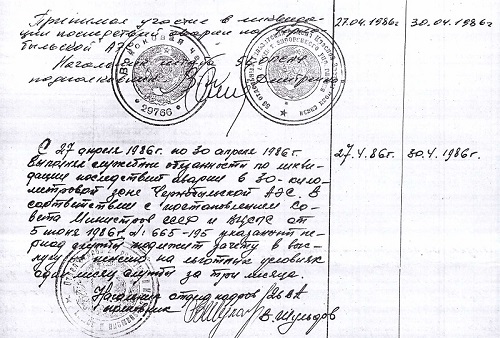 Принимал участие в ликвида-
ции последствий аварии на Черно-
быльской АЭС. 27.04.1986г 30.04.1986г
Начальник штаба
подполковник Дмитренко
29766
С 27 апреля 1986г. по 30 апреля 1986г. 27.4.86г. 30.4.1986г.
выполнял служебные обязанности по ликви-
дации последствий аварии в 30-кило-
метровой зоне Чернобыльской АЭС. В
соответствии с постановлением Со-
вета Министров СССР и ВЦСПС от
5 июня 1986г. № 665-195 указанный пе-
риод службы подлежит зачету в выс-
лугу на пенсию на льготных условиях
один месяц службы за три месяца.
Начальник отдела кадров 26 ВА
полковник В. Шульдов